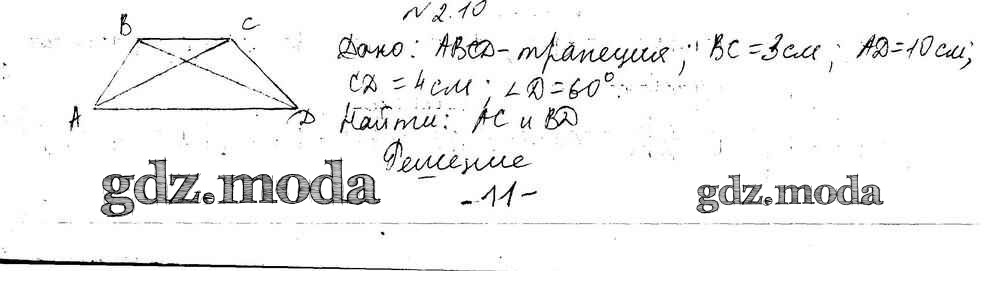 №2.10
B C
Дано: ABCD - трапеция; BC = 3 см; AD = 10 см;
CD = 4 см; ∠D = 60°.
A D
Найти: AC и BD
Решение
gdz.moda -11- gdz.moda